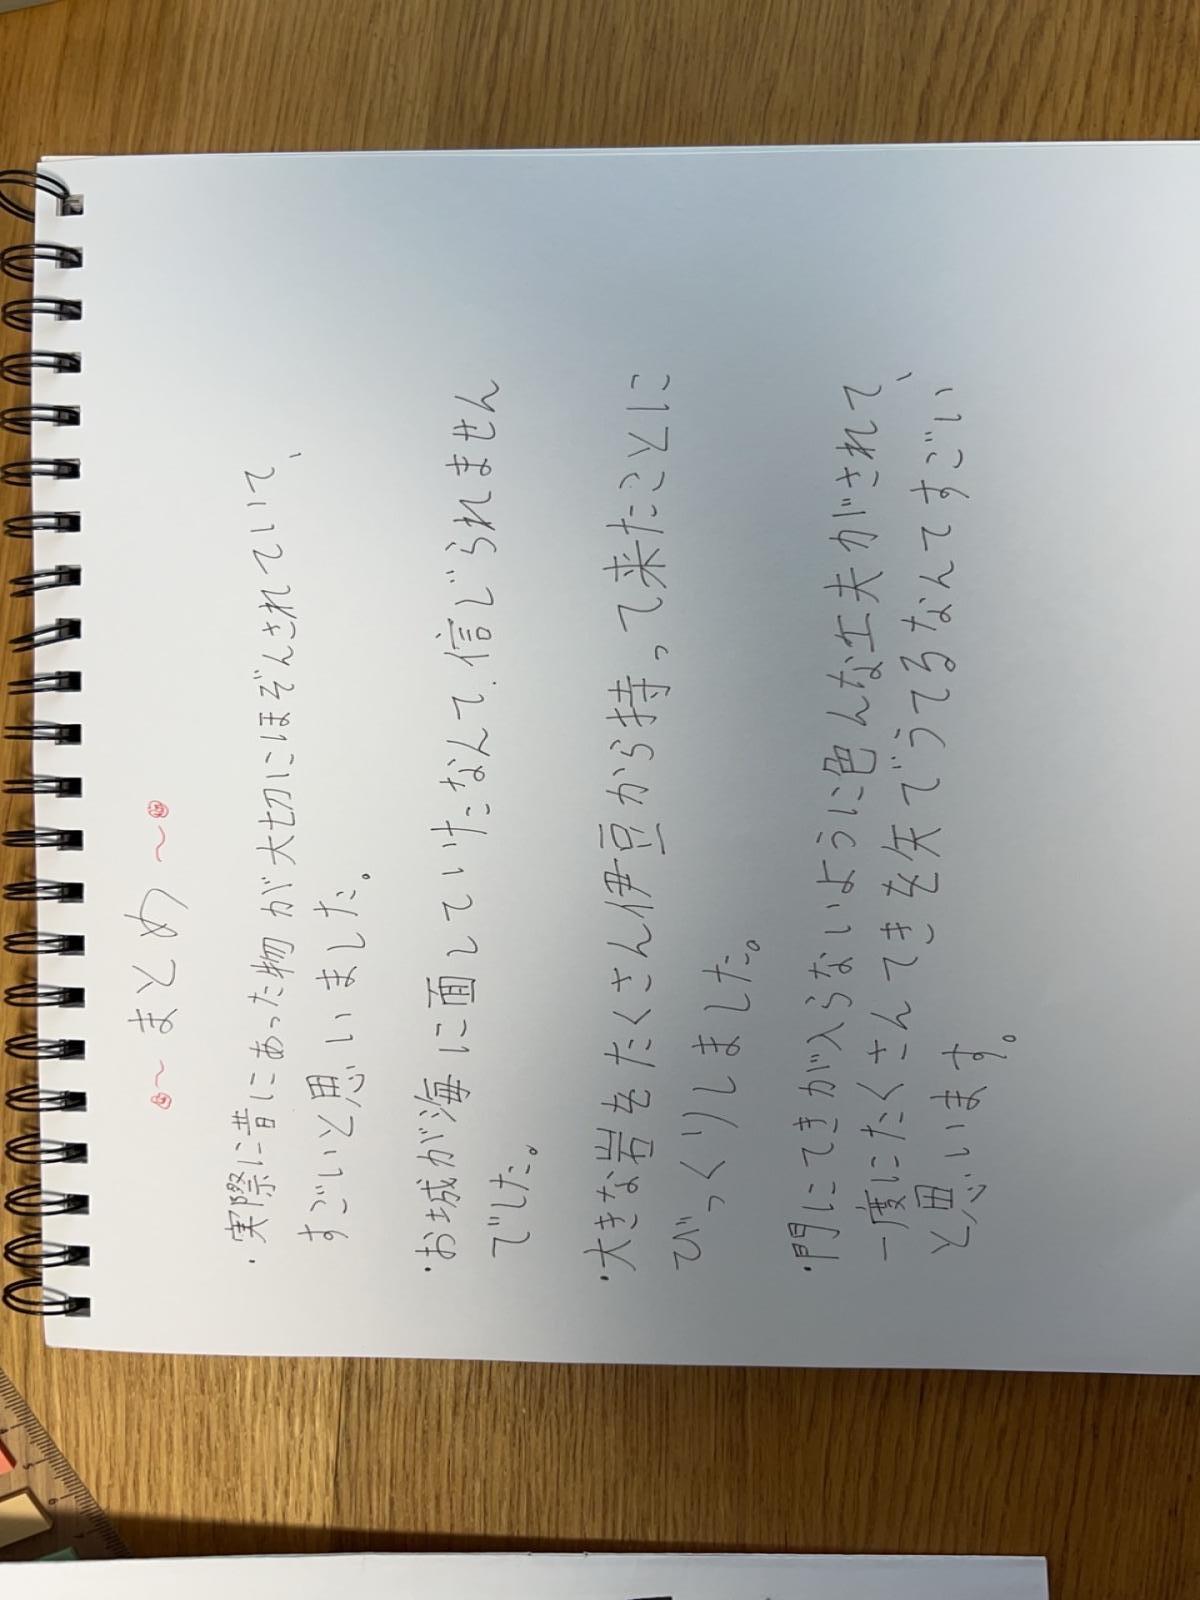 ～まとめ～
・実際に昔にあった物が大切にほぞんされていて、
すごいと思いました。
・お城が海に面していたなんて、信じられません
でした。
・大きな岩をたくさん伊豆から持って来たことに
びっくりしました。
・門にてきが入らないように色んな工夫がされて、
一度にたくさんてきを矢でうてるなんてすごい
と思います。